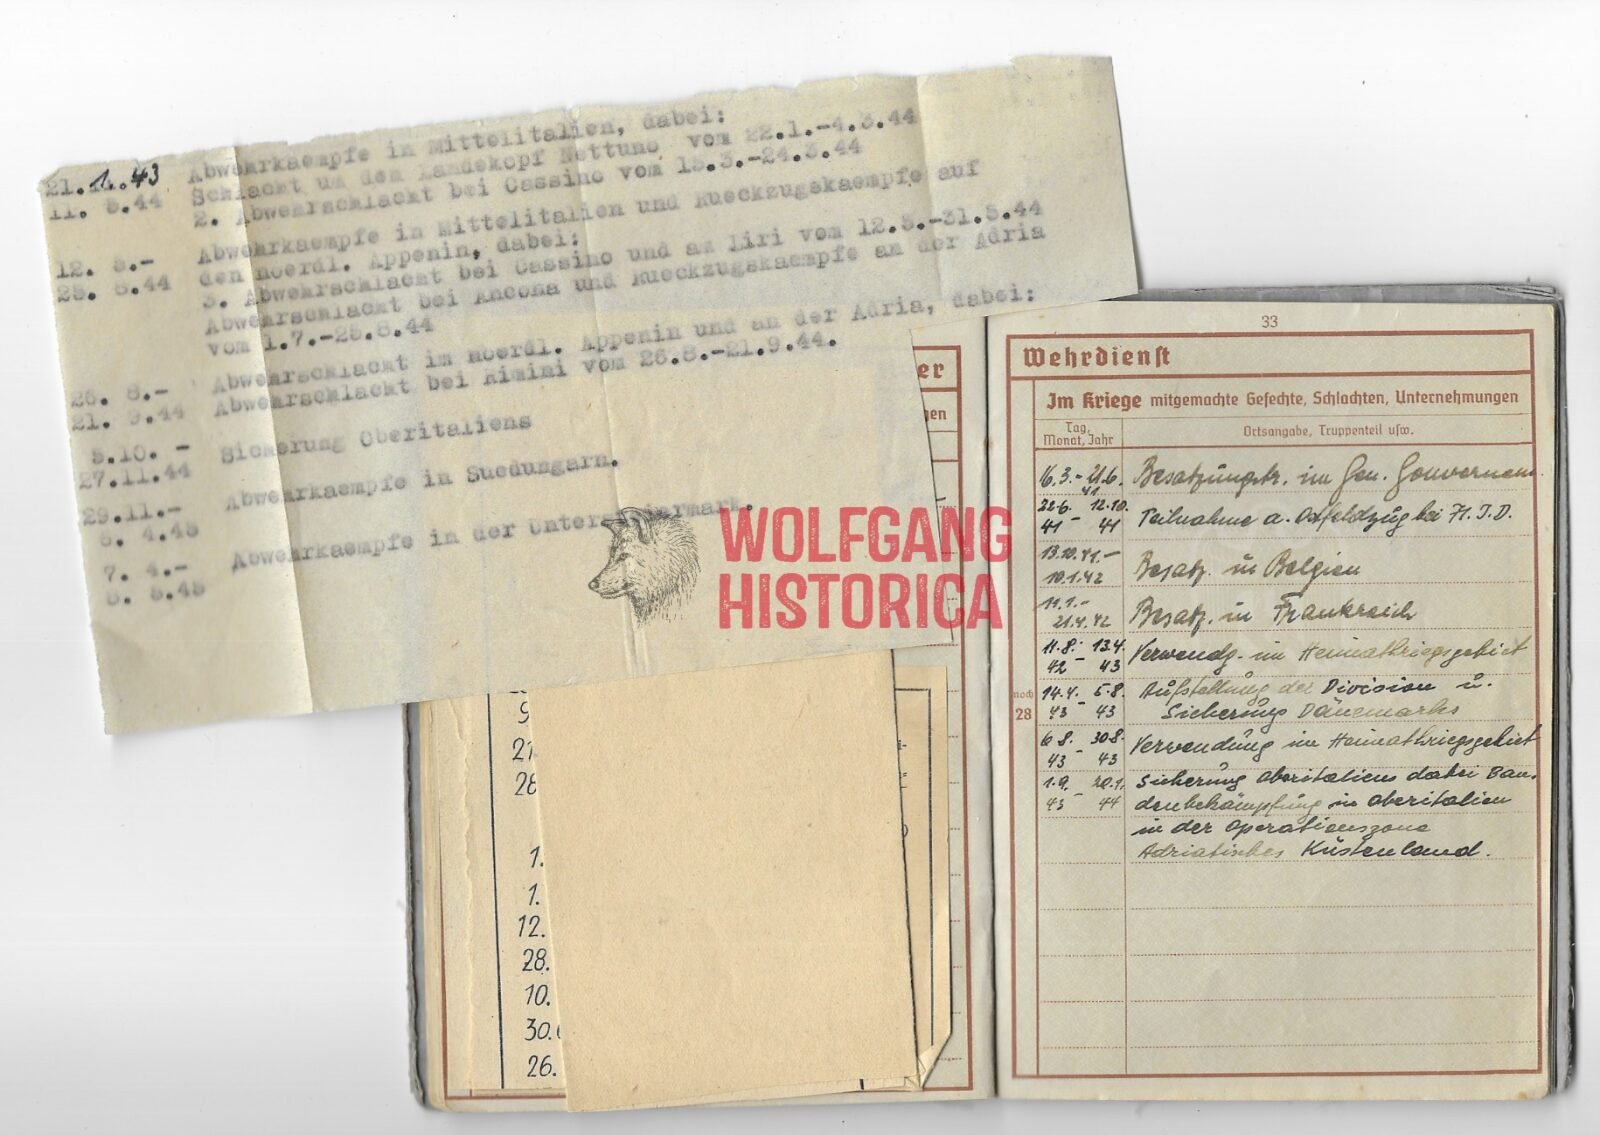 21. 1. 43 Abwehrkaempfe in Mittelitalien, dabei:
11. 5.44 Schlacht um den Landekopf Nettuno vom 22.1.-4.3.44
2. Abwehrschlacht bei Cassino vom 15.3.-24.3.44
12. 5.- Abwehrkaempfe in Mittelitalien und Rueckzugskaempfe auf
25. 8.44 den noerdl. Appenin, dabei:
3. Abwehrschlacht bei Cassino und am Liri vom 12.5.-31.5.44
Abwehrschlacht bei Ancona und Rueckzugskaempfe an der Adria
vom 1.7.-25.8.44
26. 8.- Abwehrschlacht im noerdl. Appenin und an der Adria, dabei:
21. 9.44 Abwehrschlacht bei Rimini vom 26.8.-21.9.44.
5.10. - Sicherung Oberitaliens
27.11.44
29.11.- Abwehrkaempfe in Suedungarn.
6. 4.45
7. 4.- Abwehrkaempfe in der Untersteiermark.
8. 5.45
WOLFGANG
HISTORICA
er
en
9
21
28
1.
1.
12.
28.
10.
30.
26.
33
Wehrdienst
Im Kriege mitgemachte Gefechte, Schlachten, Unternehmungen
Tag, Monat, Jahr
Ortsangabe, Truppenteil usw.
noch
28
16.3.- 21.6. 41 Besatzungstr. im Gen. Gouvernem.
22.6. 41 - 12.10. 41 Teilnahme a. Ostfeldzug bei 71. I.D.
13.10.41.- 10.1.42 Besatz. in Belgien
11.1.- 21.4.42 Besatz. in Frankreich
11.8. 42 - 13.4. 43 Verwendg. im Heimatkriegsgebiet
14.4. 43 - 5.8. 43 Aufstellung der Division u.
Sicherung Dänemarks
6.8. 43 - 30.8. 43 Verwendung im Heimatkriegsgebiet
1.9. 43 - 20.1. 44 Sicherung Oberitaliens dabei Ban-
denbekämpfung in Oberitalien
in der Operationszone
Adriatisches Küstenland.